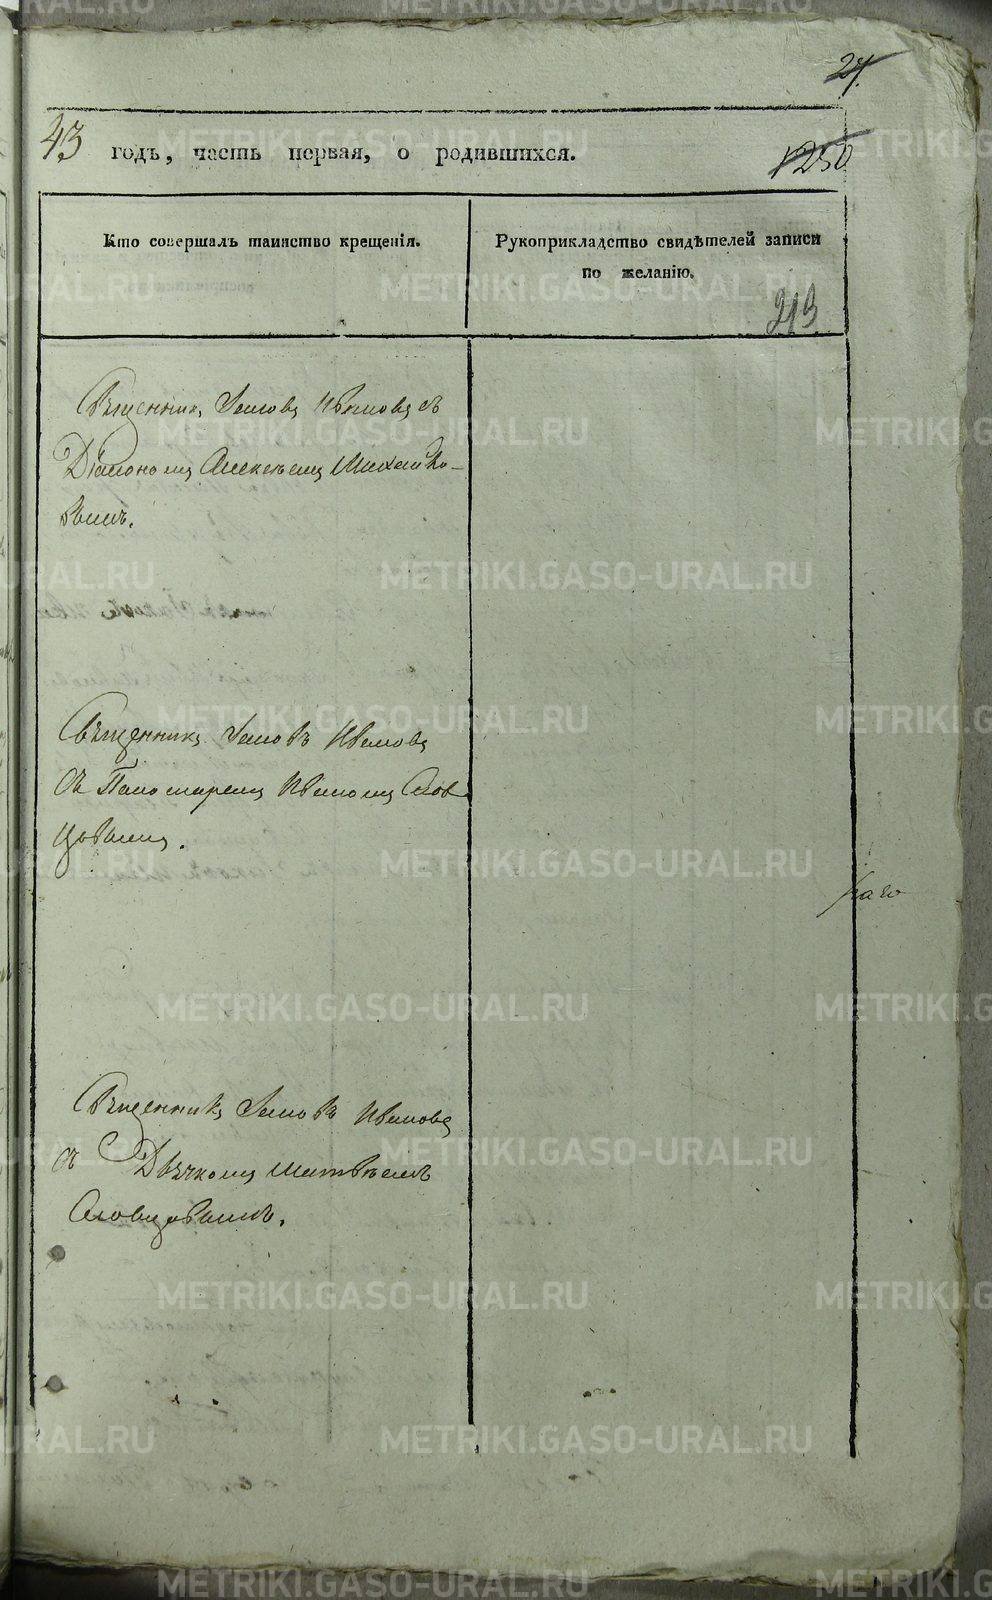 27.
43 годъ, часть первая, о родившихся.
1250
Кто совершалъ таинство крещенія.
Рукоприкладство свидѣтелей записи
по желанію.
213
Священникъ Іаковъ Ивановъ съ
Діакономъ Алексѣемъ Михайло-
вымъ.
Священникъ Іаковъ Ивановъ
съ Пономаремъ Иваномъ Слов
цовымъ.
Священникъ Іаковъ Ивановъ
съ Дьячкомъ Матвѣемъ
Словцовымъ.
METRIKI.GASO-URAL.RU